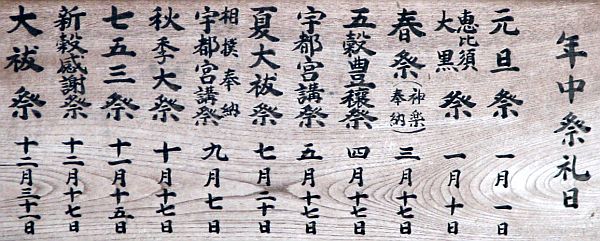 年中祭礼日
元旦祭 一月一日
恵比須大黒祭 一月十日
春祭(神楽奉納) 三月十七日
五穀豊穣祭 四月十七日
宇都宮講祭 五月十七日
夏大祓祭 七月二十日
相撲奉納宇都宮講祭 九月七日
秋季大祭 十月十七日
七五三祭 十一月十五日
新穀感謝祭 十二月十七日
大祓祭 十二月三十一日